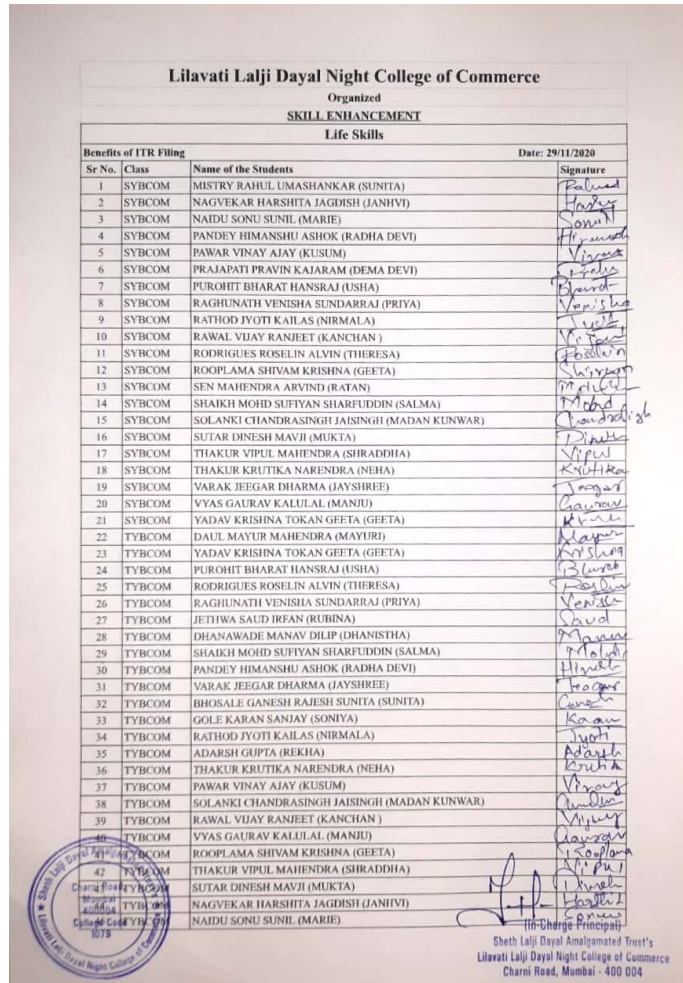 Lilavati Lalji Dayal Night College of Commerce
Organized
SKILL ENHANCEMENT
Life Skills
Benefits of ITR Filing Date: 29/11/2020
Sr No. Class Name of the Students Signature
1 SYBCOM MISTRY RAHUL UMASHANKAR (SUNITA)
2 SYBCOM NAGVEKAR HARSHITA JAGDISH (JANHVI)
3 SYBCOM NAIDU SONU SUNIL (MARIE)
4 SYBCOM PANDEY HIMANSHU ASHOK (RADHA DEVI)
5 SYBCOM PAWAR VINAY AJAY (KUSUM)
6 SYBCOM PRAJAPATI PRAVIN KAJARAM (DEMA DEVI)
7 SYBCOM PUROHIT BHARAT HANSRAJ (USHA) Bharat
8 SYBCOM RAGHUNATH VENISHA SUNDARRAJ (PRIYA) Venisha
9 SYBCOM RATHOD JYOTI KAILAS (NIRMALA)
10 SYBCOM RAWAL VIJAY RANJEET (KANCHAN )
11 SYBCOM RODRIGUES ROSELIN ALVIN (THERESA)
12 SYBCOM ROOPLAMA SHIVAM KRISHNA (GEETA)
13 SYBCOM SEN MAHENDRA ARVIND (RATAN)
14 SYBCOM SHAIKH MOHD SUFIYAN SHARFUDDIN (SALMA) Mohd
15 SYBCOM SOLANKI CHANDRASINGH JAISINGH (MADAN KUNWAR)
16 SYBCOM SUTAR DINESH MAVJI (MUKTA)
17 SYBCOM THAKUR VIPUL MAHENDRA (SHRADDHA) Vipul
18 SYBCOM THAKUR KRUTIKA NARENDRA (NEHA) Krutika
19 SYBCOM VARAK JEEGAR DHARMA (JAYSHREE) Jeegar
20 SYBCOM VYAS GAURAV KALULAL (MANJU) Gaurav
21 SYBCOM YADAV KRISHNA TOKAN GEETA (GEETA)
22 TYBCOM DAUL MAYUR MAHENDRA (MAYURI) Mayur
23 TYBCOM YADAV KRISHNA TOKAN GEETA (GEETA) Krishna
24 TYBCOM PUROHIT BHARAT HANSRAJ (USHA)
25 TYBCOM RODRIGUES ROSELIN ALVIN (THERESA)
26 TYBCOM RAGHUNATH VENISHA SUNDARRAJ (PRIYA)
27 TYBCOM JETHWA SAUD IRFAN (RUBINA) Saud
28 TYBCOM DHANAWADE MANAV DILIP (DHANISTHA)
29 TYBCOM SHAIKH MOHD SUFIYAN SHARFUDDIN (SALMA)
30 TYBCOM PANDEY HIMANSHU ASHOK (RADHA DEVI)
31 TYBCOM VARAK JEEGAR DHARMA (JAYSHREE)
32 TYBCOM BHOSALE GANESH RAJESH SUNITA (SUNITA)
33 TYBCOM GOLE KARAN SANJAY (SONIYA) Karan
34 TYBCOM RATHOD JYOTI KAILAS (NIRMALA) Jyoti
35 TYBCOM ADARSH GUPTA (REKHA) Adarsh
36 TYBCOM THAKUR KRUTIKA NARENDRA (NEHA)
37 TYBCOM PAWAR VINAY AJAY (KUSUM)
38 TYBCOM SOLANKI CHANDRASINGH JAISINGH (MADAN KUNWAR)
39 TYBCOM RAWAL VIJAY RANJEET (KANCHAN )
40 TYBCOM VYAS GAURAV KALULAL (MANJU)
TYBCOM ROOPLAMA SHIVAM KRISHNA (GEETA) Rooplama
42 TYBCOM THAKUR VIPUL MAHENDRA (SHRADDHA) Vipul
TYBCOM SUTAR DINESH MAVJI (MUKTA) Dinesh
TYBCOM NAGVEKAR HARSHITA JAGDISH (JANHVI)
TYBCOM NAIDU SONU SUNIL (MARIE)
Charni Road
Mumbai
400004
College Code
1079
(In-Charge Principal)
Sheth Lalji Dayal Amalgamated Trust's
Lilavati Lalji Dayal Night College of Commerce
Charni Road, Mumbai - 400 004